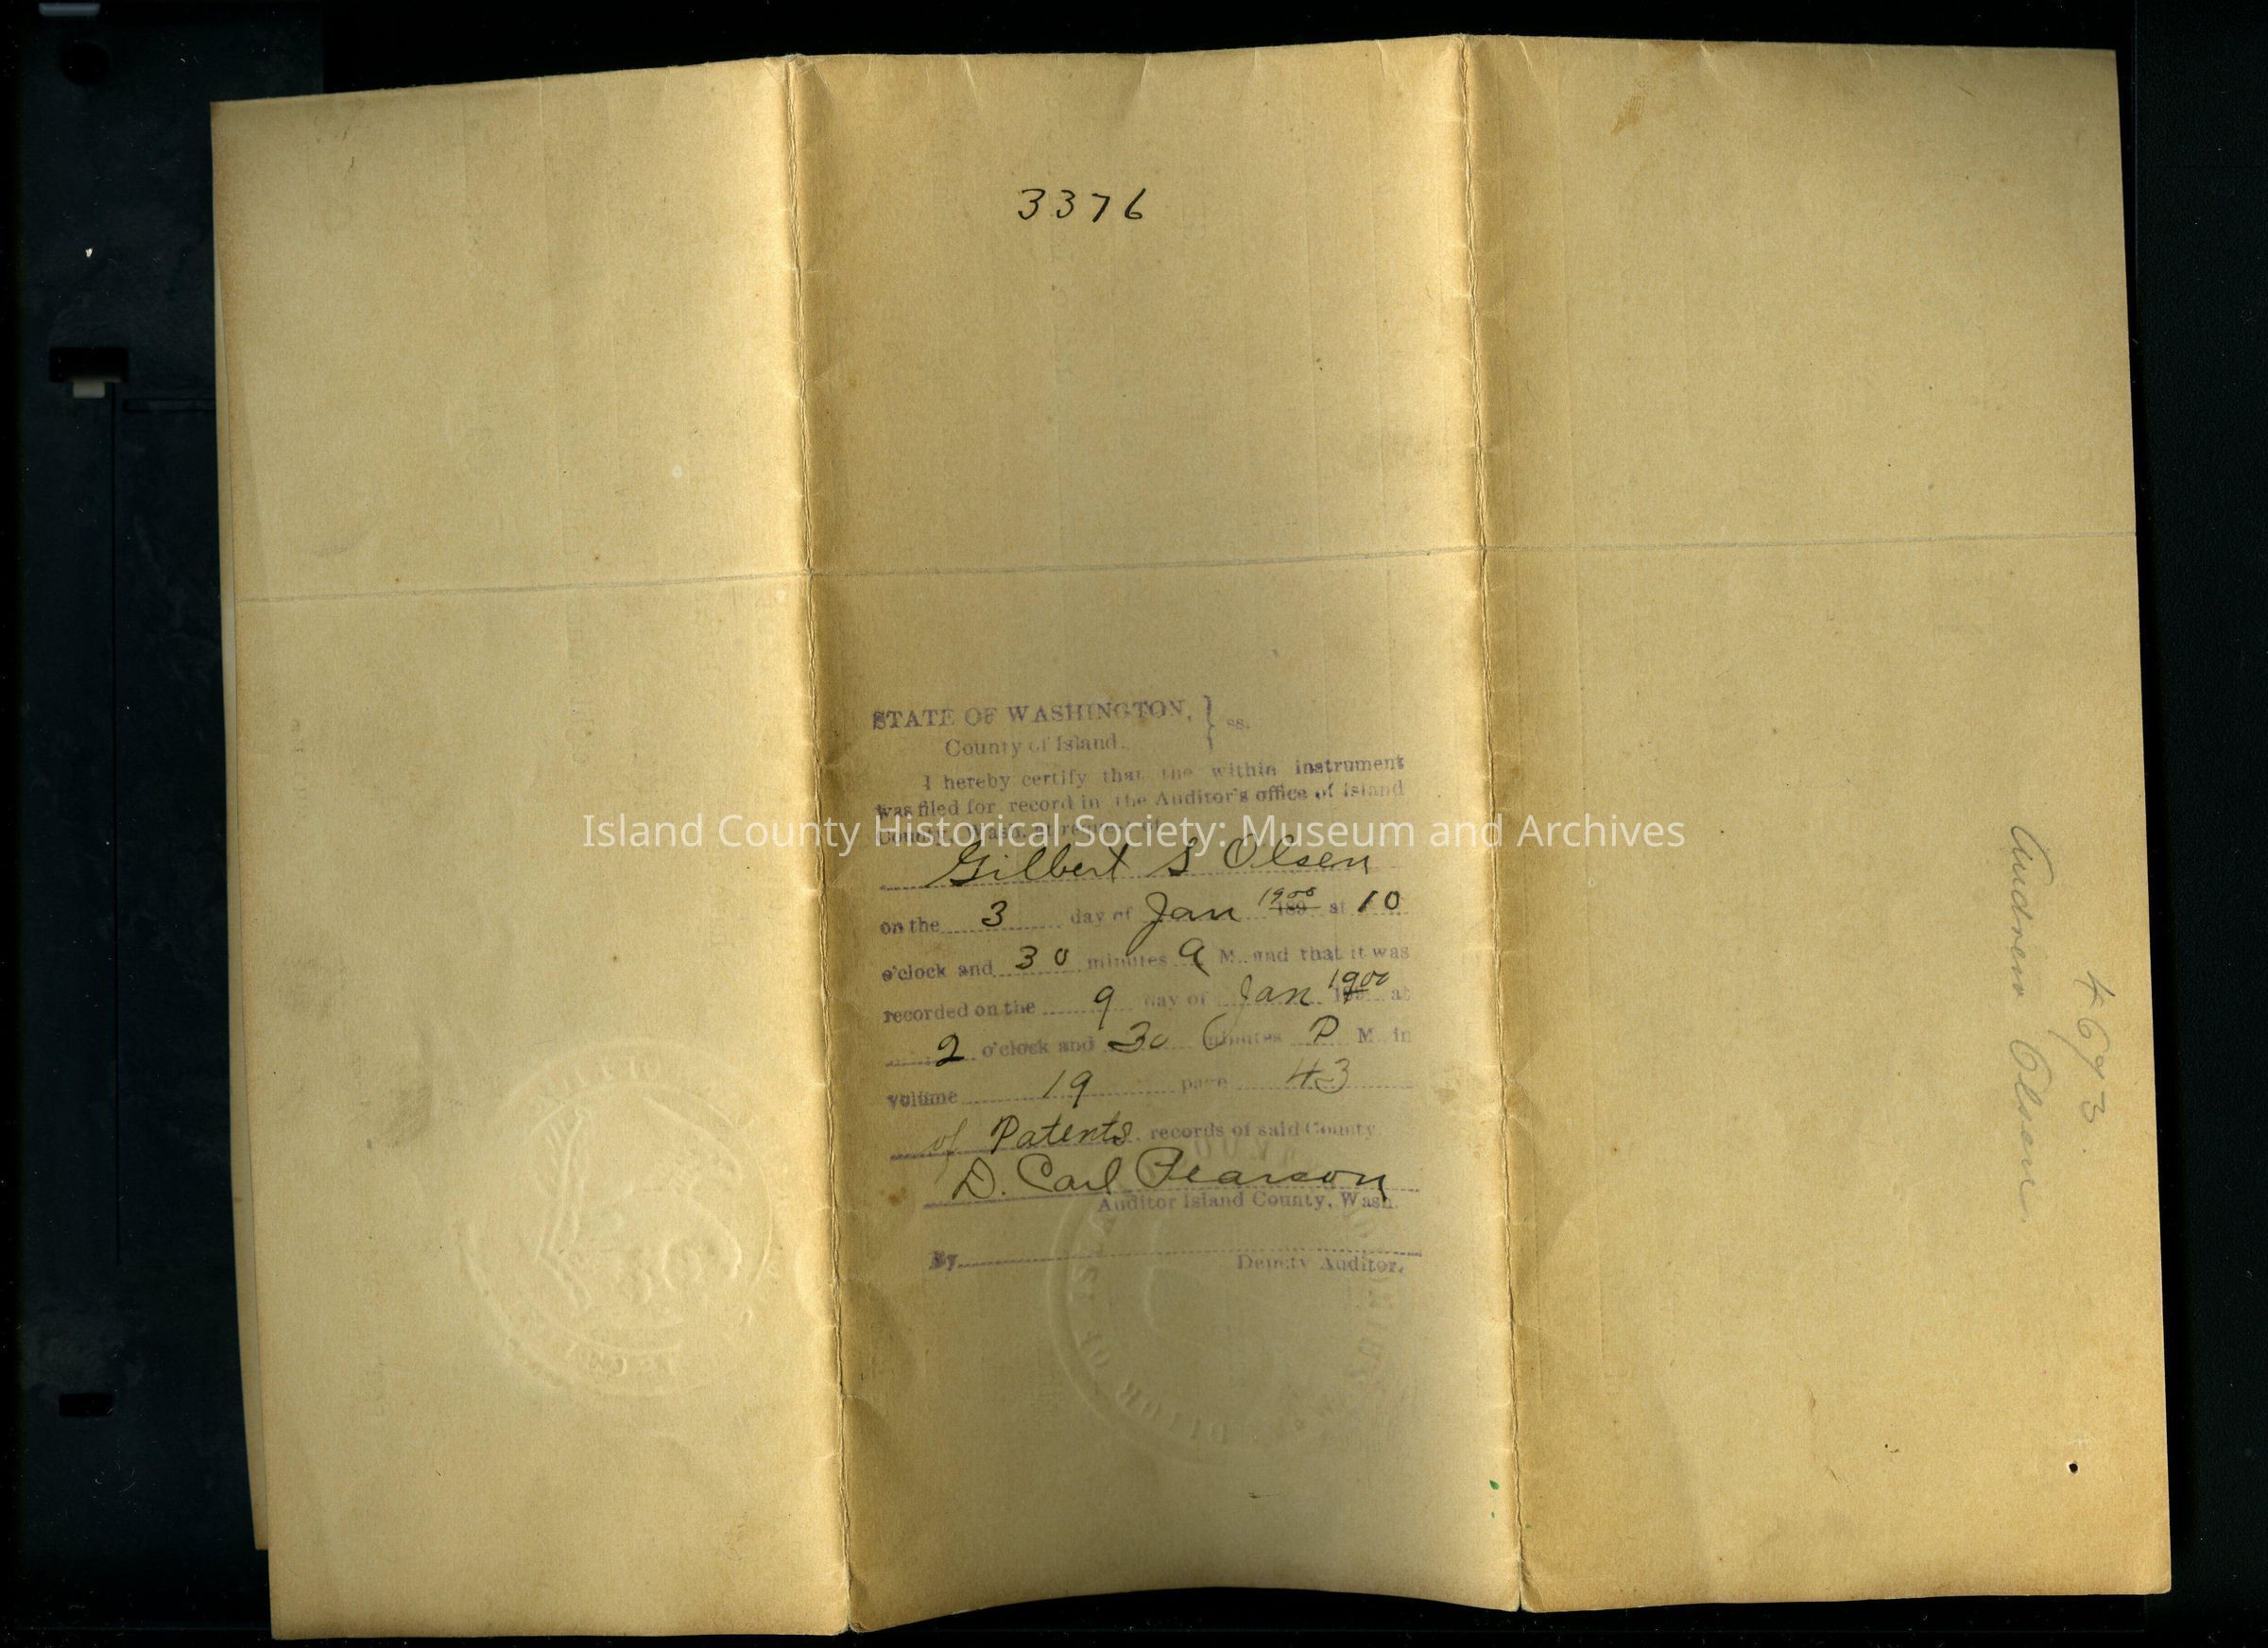 3376
STATE OF WASHINGTON, } ss.
County of Island.
I hereby certify that the within instrument
was filed for record in the Auditor's office of Island
County, Wash. at request of
Island County Historical Society: Museum and Archives
Gilbert S Olsen
on the 3 day of Jan 1900 189 at 10
o'clock and 30 minutes A M. and that it was
recorded on the 9 day of Jan 1900 189 at
2 o'clock and 30 minutes P M. in
volume 19 page 43
of Patents records of said County
D. Carl Pearson
Auditor Island County, Wash.
By
Deputy Auditor.
4693.
Andrew Olsen.